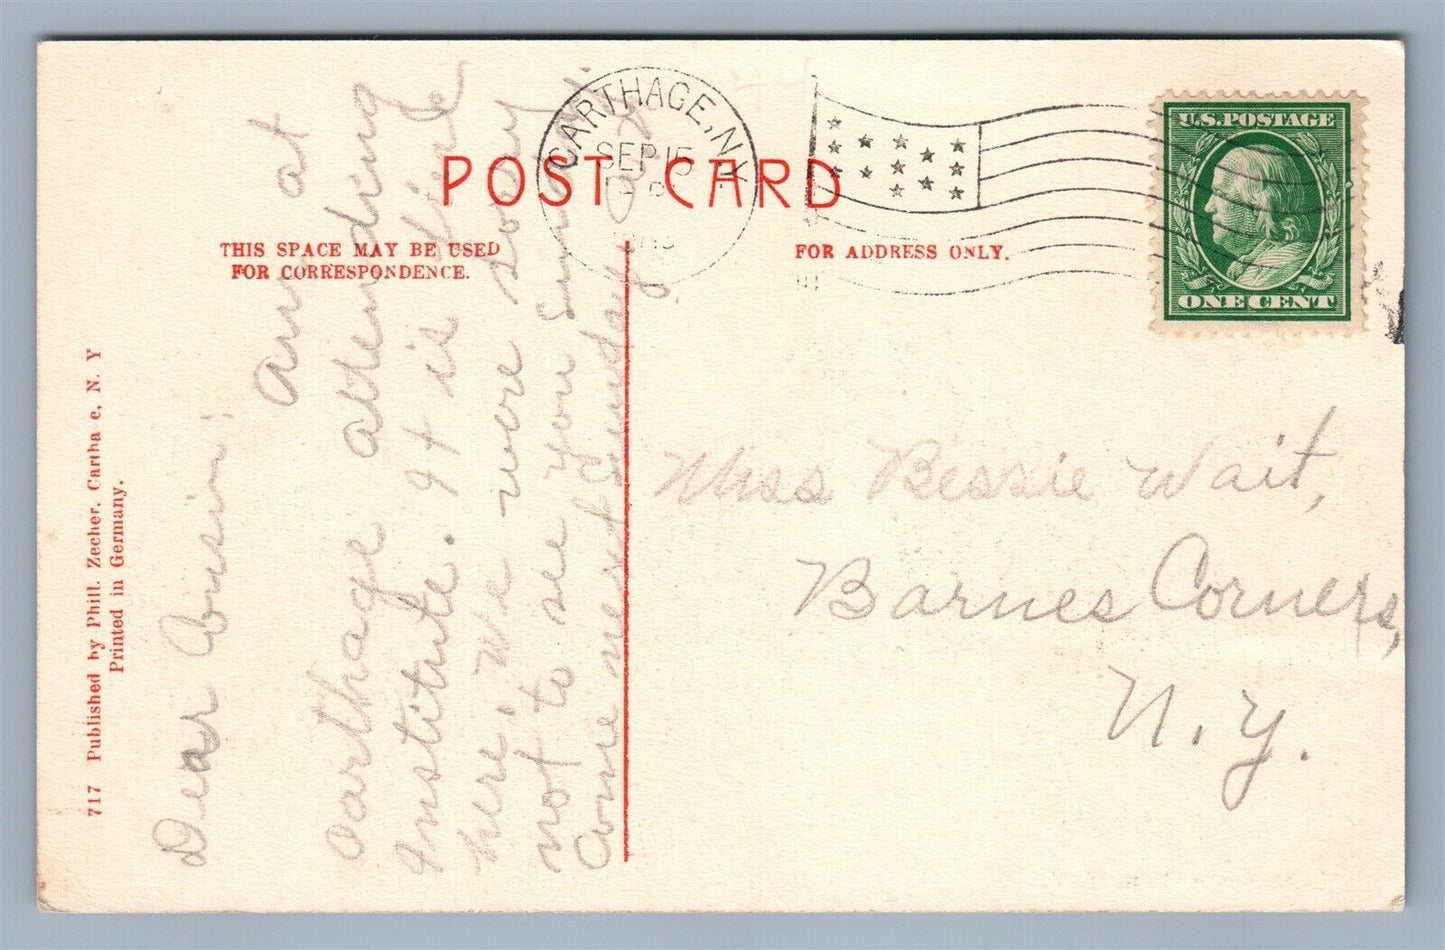 POST CARD
THIS SPACE MAY BE USED
FOR CORRESPONDENCE.
FOR ADDRESS ONLY.
CARTHAGE, N.Y.
SEP 15
U.S. POSTAGE
ONE CENT
717 Published by Phill. Zecher, Cartha e, N. Y
Printed in Germany.
Dear Cousin:
am at
Carthage attending
Institute. It is fine
here. We were sorry
not to see you Sunday.
Come next Sunday
Miss Bessie Wait,
Barnes Corners,
N.Y.